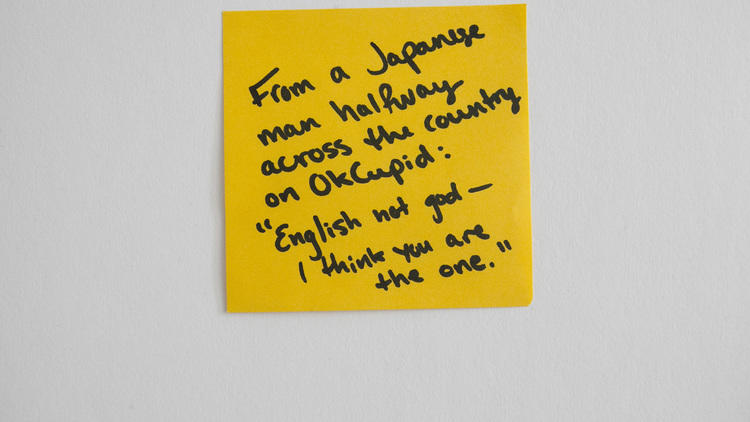 From a Japanese
man halfway
across the country
on OkCupid:
"English not god—
I think you are
the one."